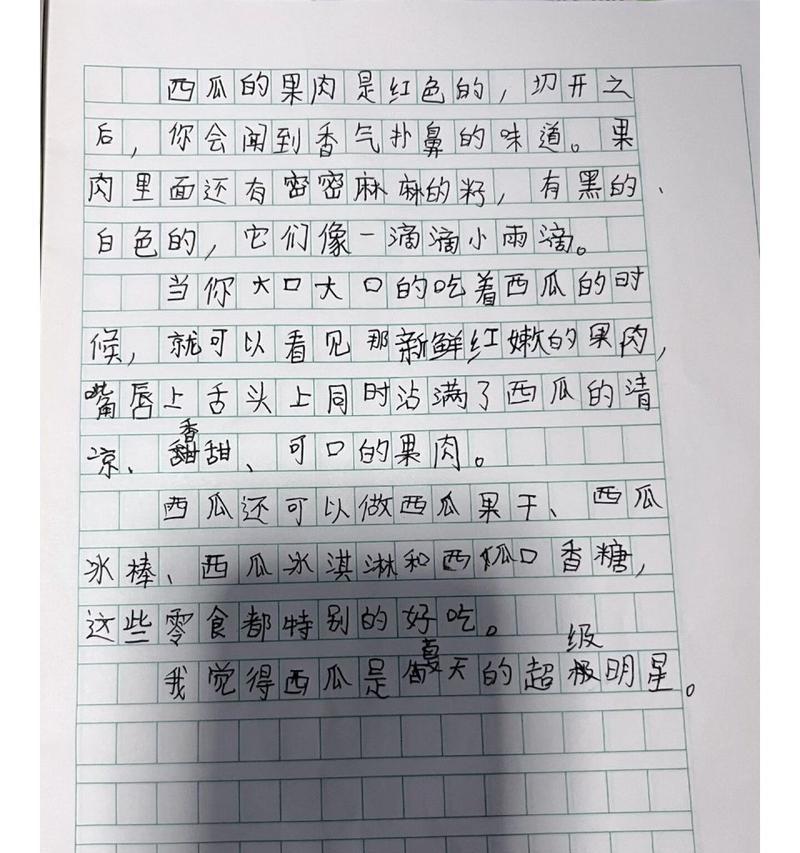 西瓜的果肉是红色的，切开之
后，你会闻到香气扑鼻的味道。果
肉里面还有密密麻麻的籽，有黑的、
白色的，它们像一滴滴小雨滴。
当你大口大口的吃着西瓜的时
候，就可以看见那新鲜红嫩的果肉，
嘴唇上舌头上同时沾满了西瓜的清
凉、香甜、可口的果肉。
西瓜还可以做西瓜果干、西瓜
冰棒、西瓜冰淇淋和西瓜口香糖，
这些零食都特别的好吃。
我觉得西瓜是夏天的超级明星。